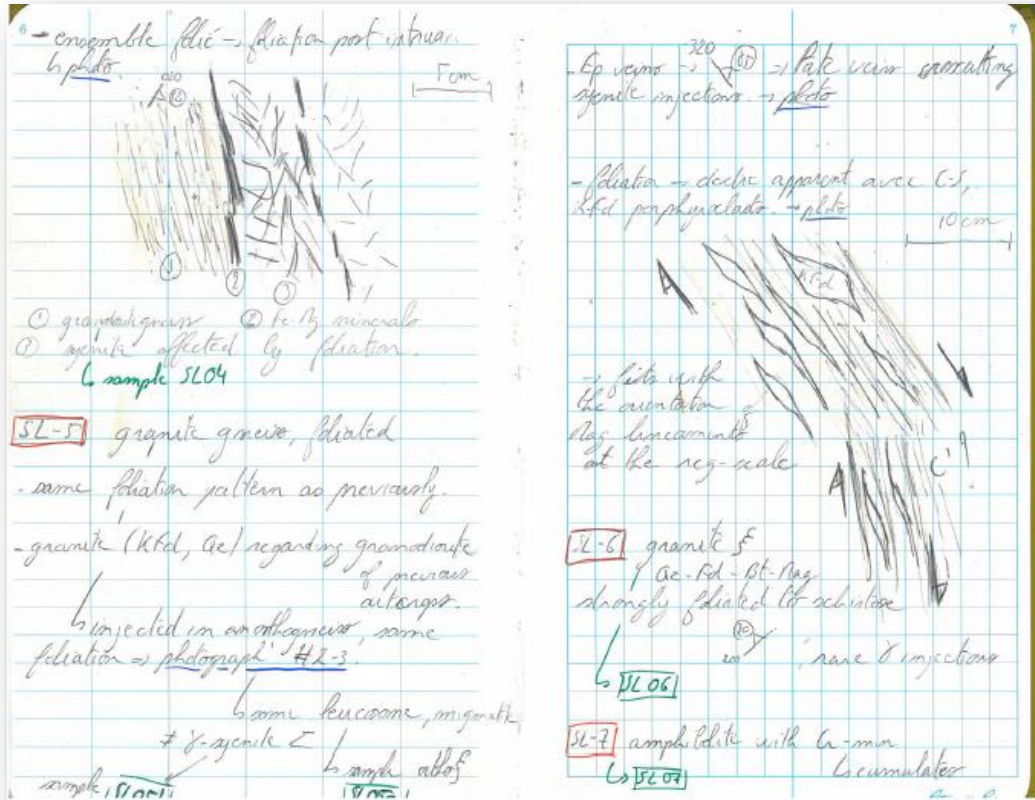 6
- ensemble folié → foliation post intrusion
↳ photo.
020
5 cm
① ② ③
① granodiorigneiss ② Fe-Mg minerals
③ syenite affected by foliation.
↳ sample SL04
SL-5 granite gneiss, foliated
- same foliation pattern as previously.
- granite (KFd, Qz) regarding granodiorite
of previous
outcrops.
↳ injected in an orthogneiss, same
foliation ⇒ photograph #2-3.
↳ some leucosome, migmatite
# γ-syenite Σ
sample ↳ sample orthoξ
7
- Ep veins → 320 85 ⇒ Late veins crosscutting
syenite injections. → photo
- foliation → dextre apparent avec C-S,
KFd porphyroclasts. → photo
10 cm
KFd
→ fits with
the orientation of
Mag lineaments
at the reg-scale
C'
SL-6 granite ξ
Qz - Fd - Bt - Mag
strongly foliated to schistose
70
200 , rare γ injections
↳ SL06
SL-7 amphibolite with
↳ SL07 ↳ cumulates